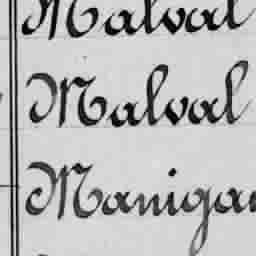 Malval
Malval
Maniga